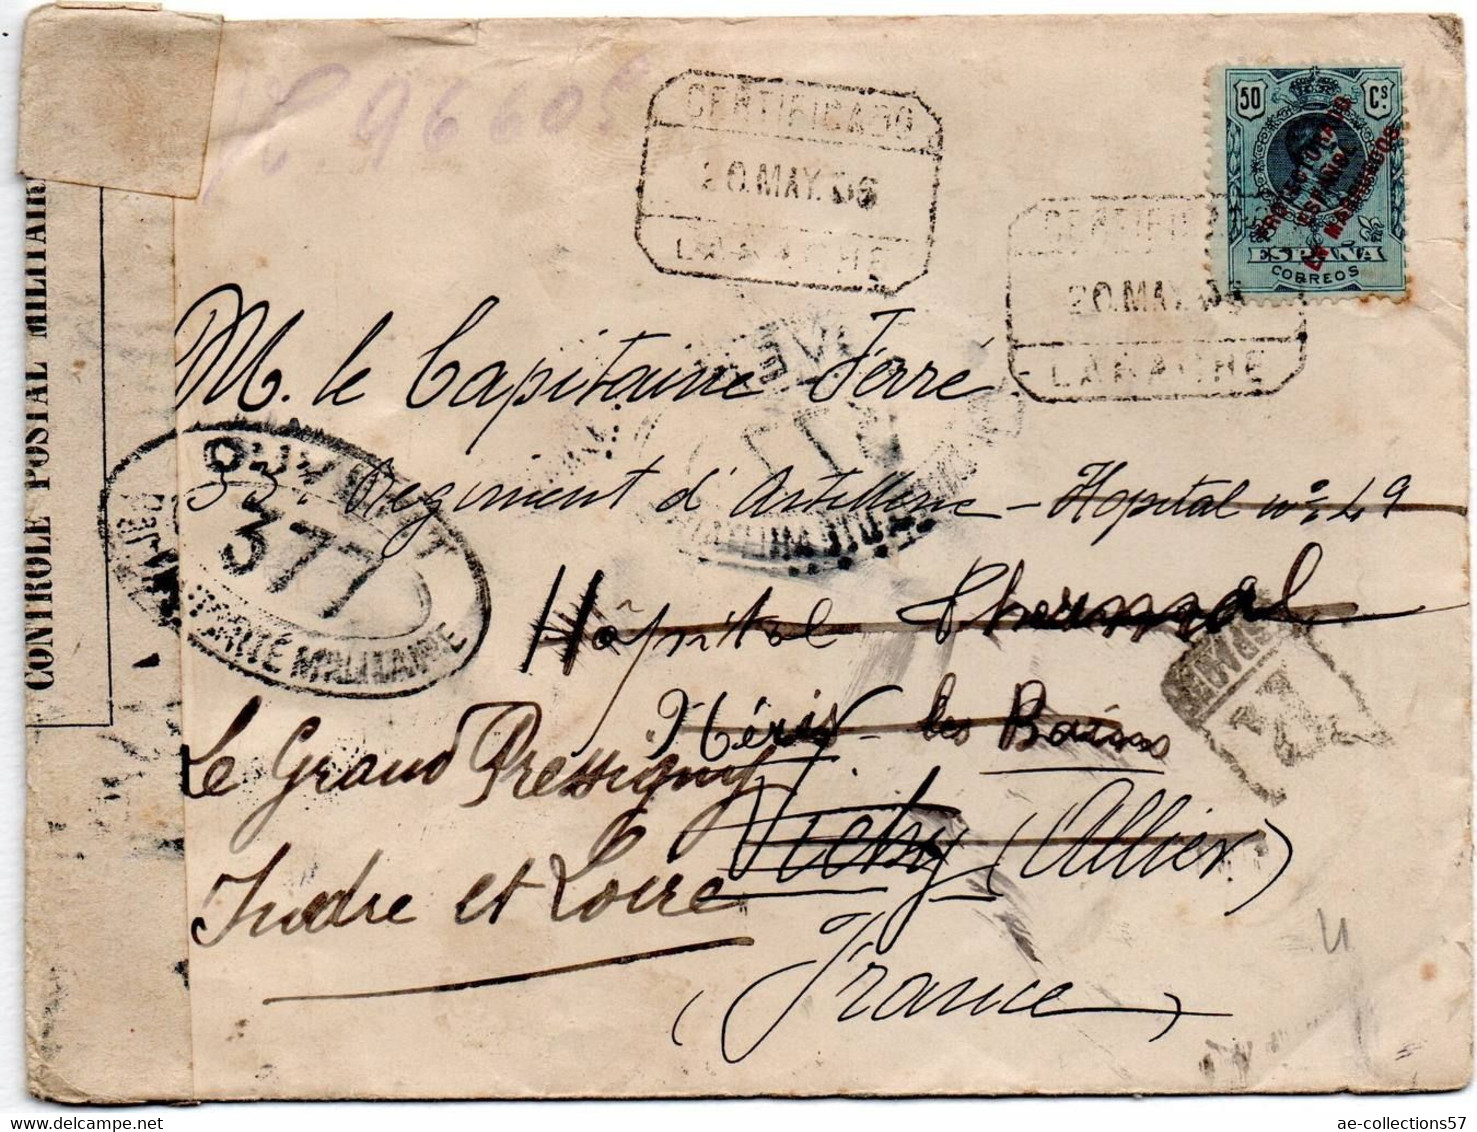 CERTIFICADO
20.MAY.06
LARACHE
50 Cs.
PROTECTORADO
ESPAÑOL
EN MARRUECOS
ESPAÑA
CORREOS
CERTIFI
20.MAY.06
LARACHE
CONTROLE POSTAL MILITAIRE
M. le Capitaine Ferré
33e Regiment d'Artillerie - Hopital no 49
OUVERT
PAR L'AUTORITÉ MILITAIRE
377
Hôpital Thermal
Néris les Bains
Le Grand Pressigny
Vichy (Allier)
Indre et Loire
(France)
delcampe.net
ae-collections57